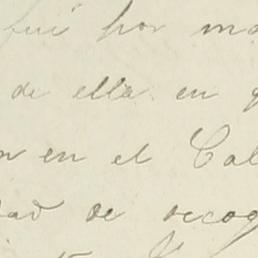 fui por ma
de ella en q
n en el Cal
dad de recog